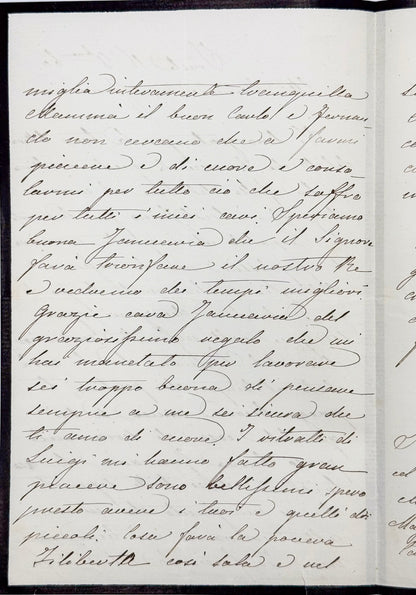 miglia interamente tranquilla
Mammà il buon Carlo e Fernan-
do non cercano che a farmi
piacere e di cuore e conso-
larmi per tutto ciò che soffro
per tutti i miei cari. Speriamo
buona che il Signore
farà trionfare il nostro Re
e vedremo dei tempi migliori.
Grazie cara del
graziosissimo regalo che mi
hai mandato per lavorare
sei troppo buona di pensare
sempre a me sei sicura che
ti amo di cuore. I ritratti di
Luigi mi hanno fatto gran
piacere sono bellissimi spero
presto avere i tuoi e quelli dei
piccoli. Cosa farà la povera
Filiberta così sola e nel